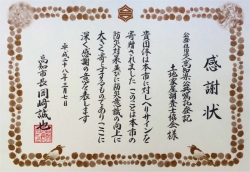 感謝状
公益社団法人高知県公共嘱託登記
土地家屋調査士協会様
貴団体は本市に対しヘリサインを
寄贈されました このことは本市の
防災対策並びに防災意識の向上に
大きく寄与するものであり ここに
深く感謝の意を表します
平成二十八年二月七日
高知市長 岡﨑誠也